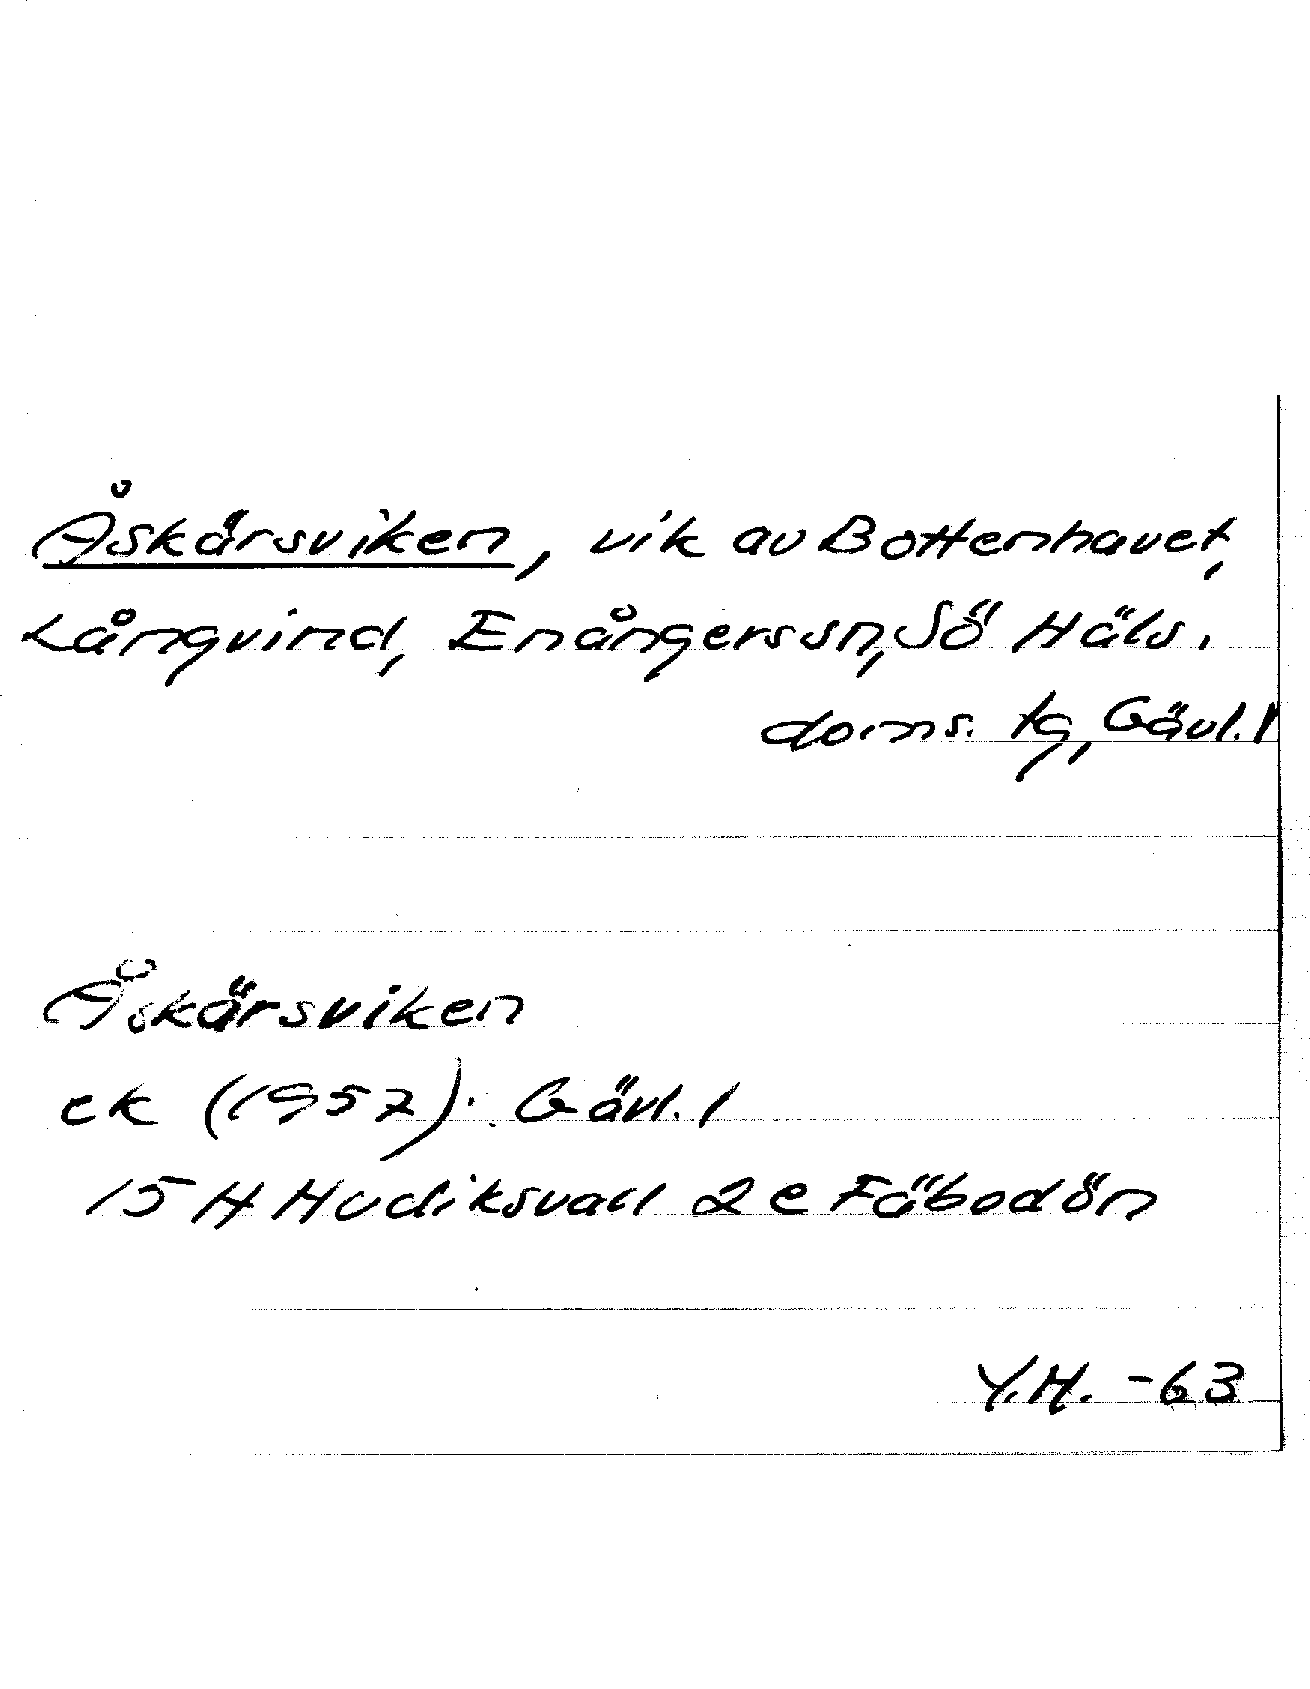 Åskärsviken, vik av Bottenhavet,
Långvind, Enångers sn, Sö Häls.
doms. tg, Gävl. l
Åskärsviken
ek (1957). Gävl. l
15 H Hudiksvall 2 e Fäbodön
Y.H. -63